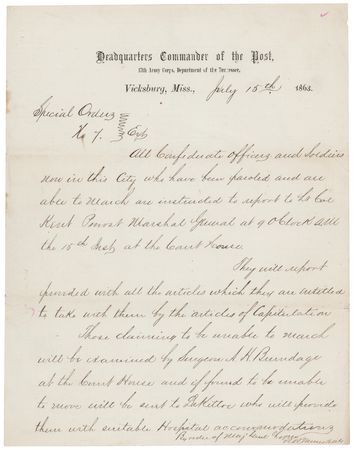 Headquarters Commander of the Post,
17th Army Corps, Department of the Tennessee,
Vicksburg, Miss., July 15th 1863.
Special Orders
No 7. Ext
All Confederate Officers and Soldiers
now in this City who have been paroled and are
able to March are instructed to report to Lt Col
Kent Provost Marshal General at 9 O'Clock AM
the 15th Inst, at the Court House.
They will report
provided with all the articles which they are entitled
to take with them by the articles of Capitulation
Those claiming to be unable to march
will be examined by Surgeon A. H. Brundage
at the Court House and if found to be unable
to move will be sent to who will provide
them with suitable Hospital accommodations
By order of Maj Genl Logan